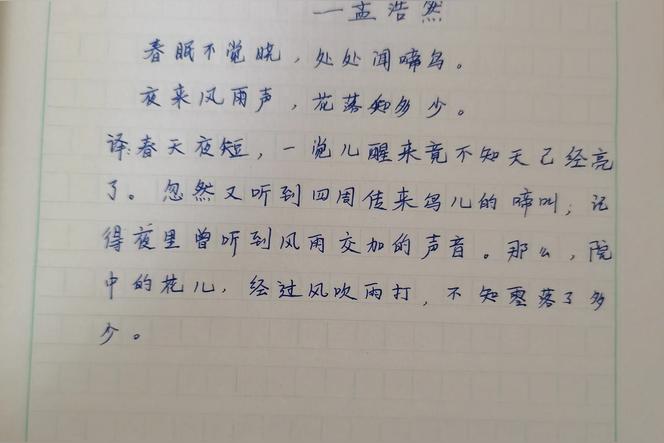 ——孟浩然
春眠不觉晓，处处闻啼鸟。
夜来风雨声，花落知多少。
译:春天夜短，一觉儿醒来竟不知天已经亮
了。忽然又听到四周传来鸟儿的啼叫；记
得夜里曾听到风雨交加的声音。那么，院
中的花儿，经过风吹雨打，不知零落了多
少。